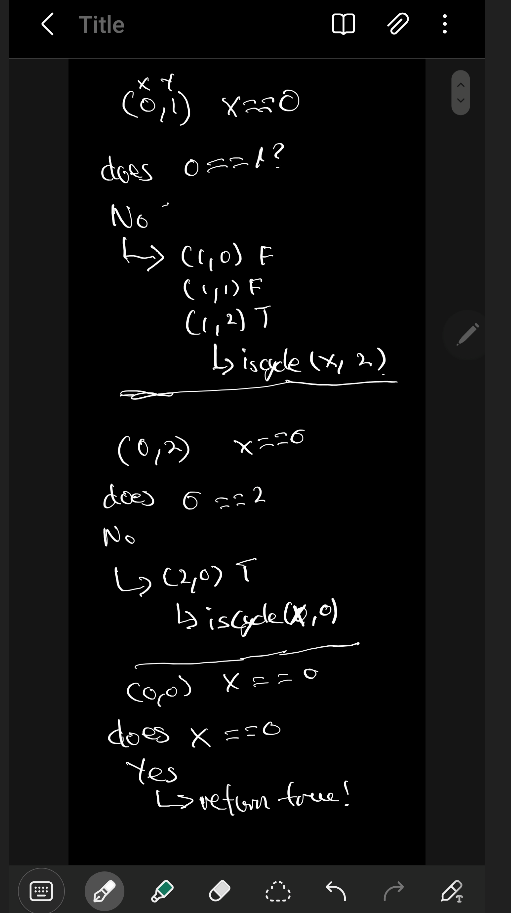 Title
x y
(0,1) x==0
does 0==1?
No
↳ (1,0) F
(1,1) F
(1,2) T
↳ iscycle (x, 2)
(0,2) x==0
does 0==2
No
↳ (2,0) T
↳ iscycle(x,0)
(0,0) x==0
does x==0
Yes
↳ return true!